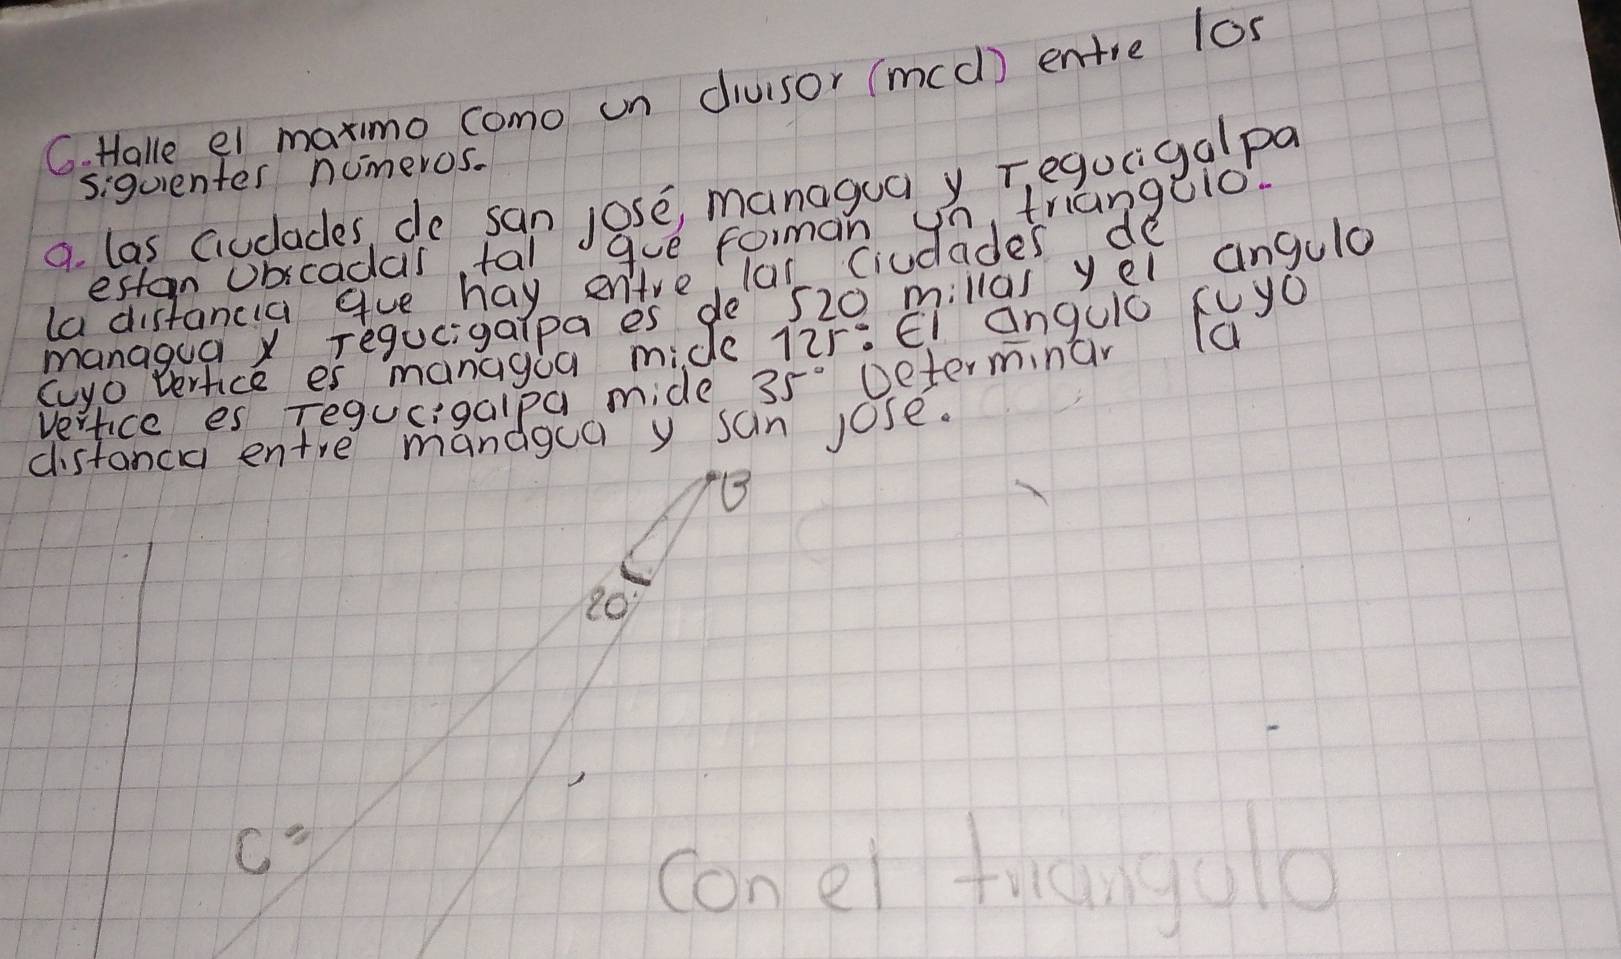 C. Halle el maximo como un divisor (mcd) entre los
siguientes números.
a. las ciudades de san josé, managua y Tegucigalpa
estan ubicadas tal que forman un triangulo.
la distancia que hay entre las ciudades de
managua y Tegucigalpa es de 520 millas y el angulo
cuyo vertice es managua mide 125°. El angulo cuyo
vertice es Tegucigalpa mide 35° Determinar la
distancia entre managua y san josé.
B
20°
C =
Con el triangulo